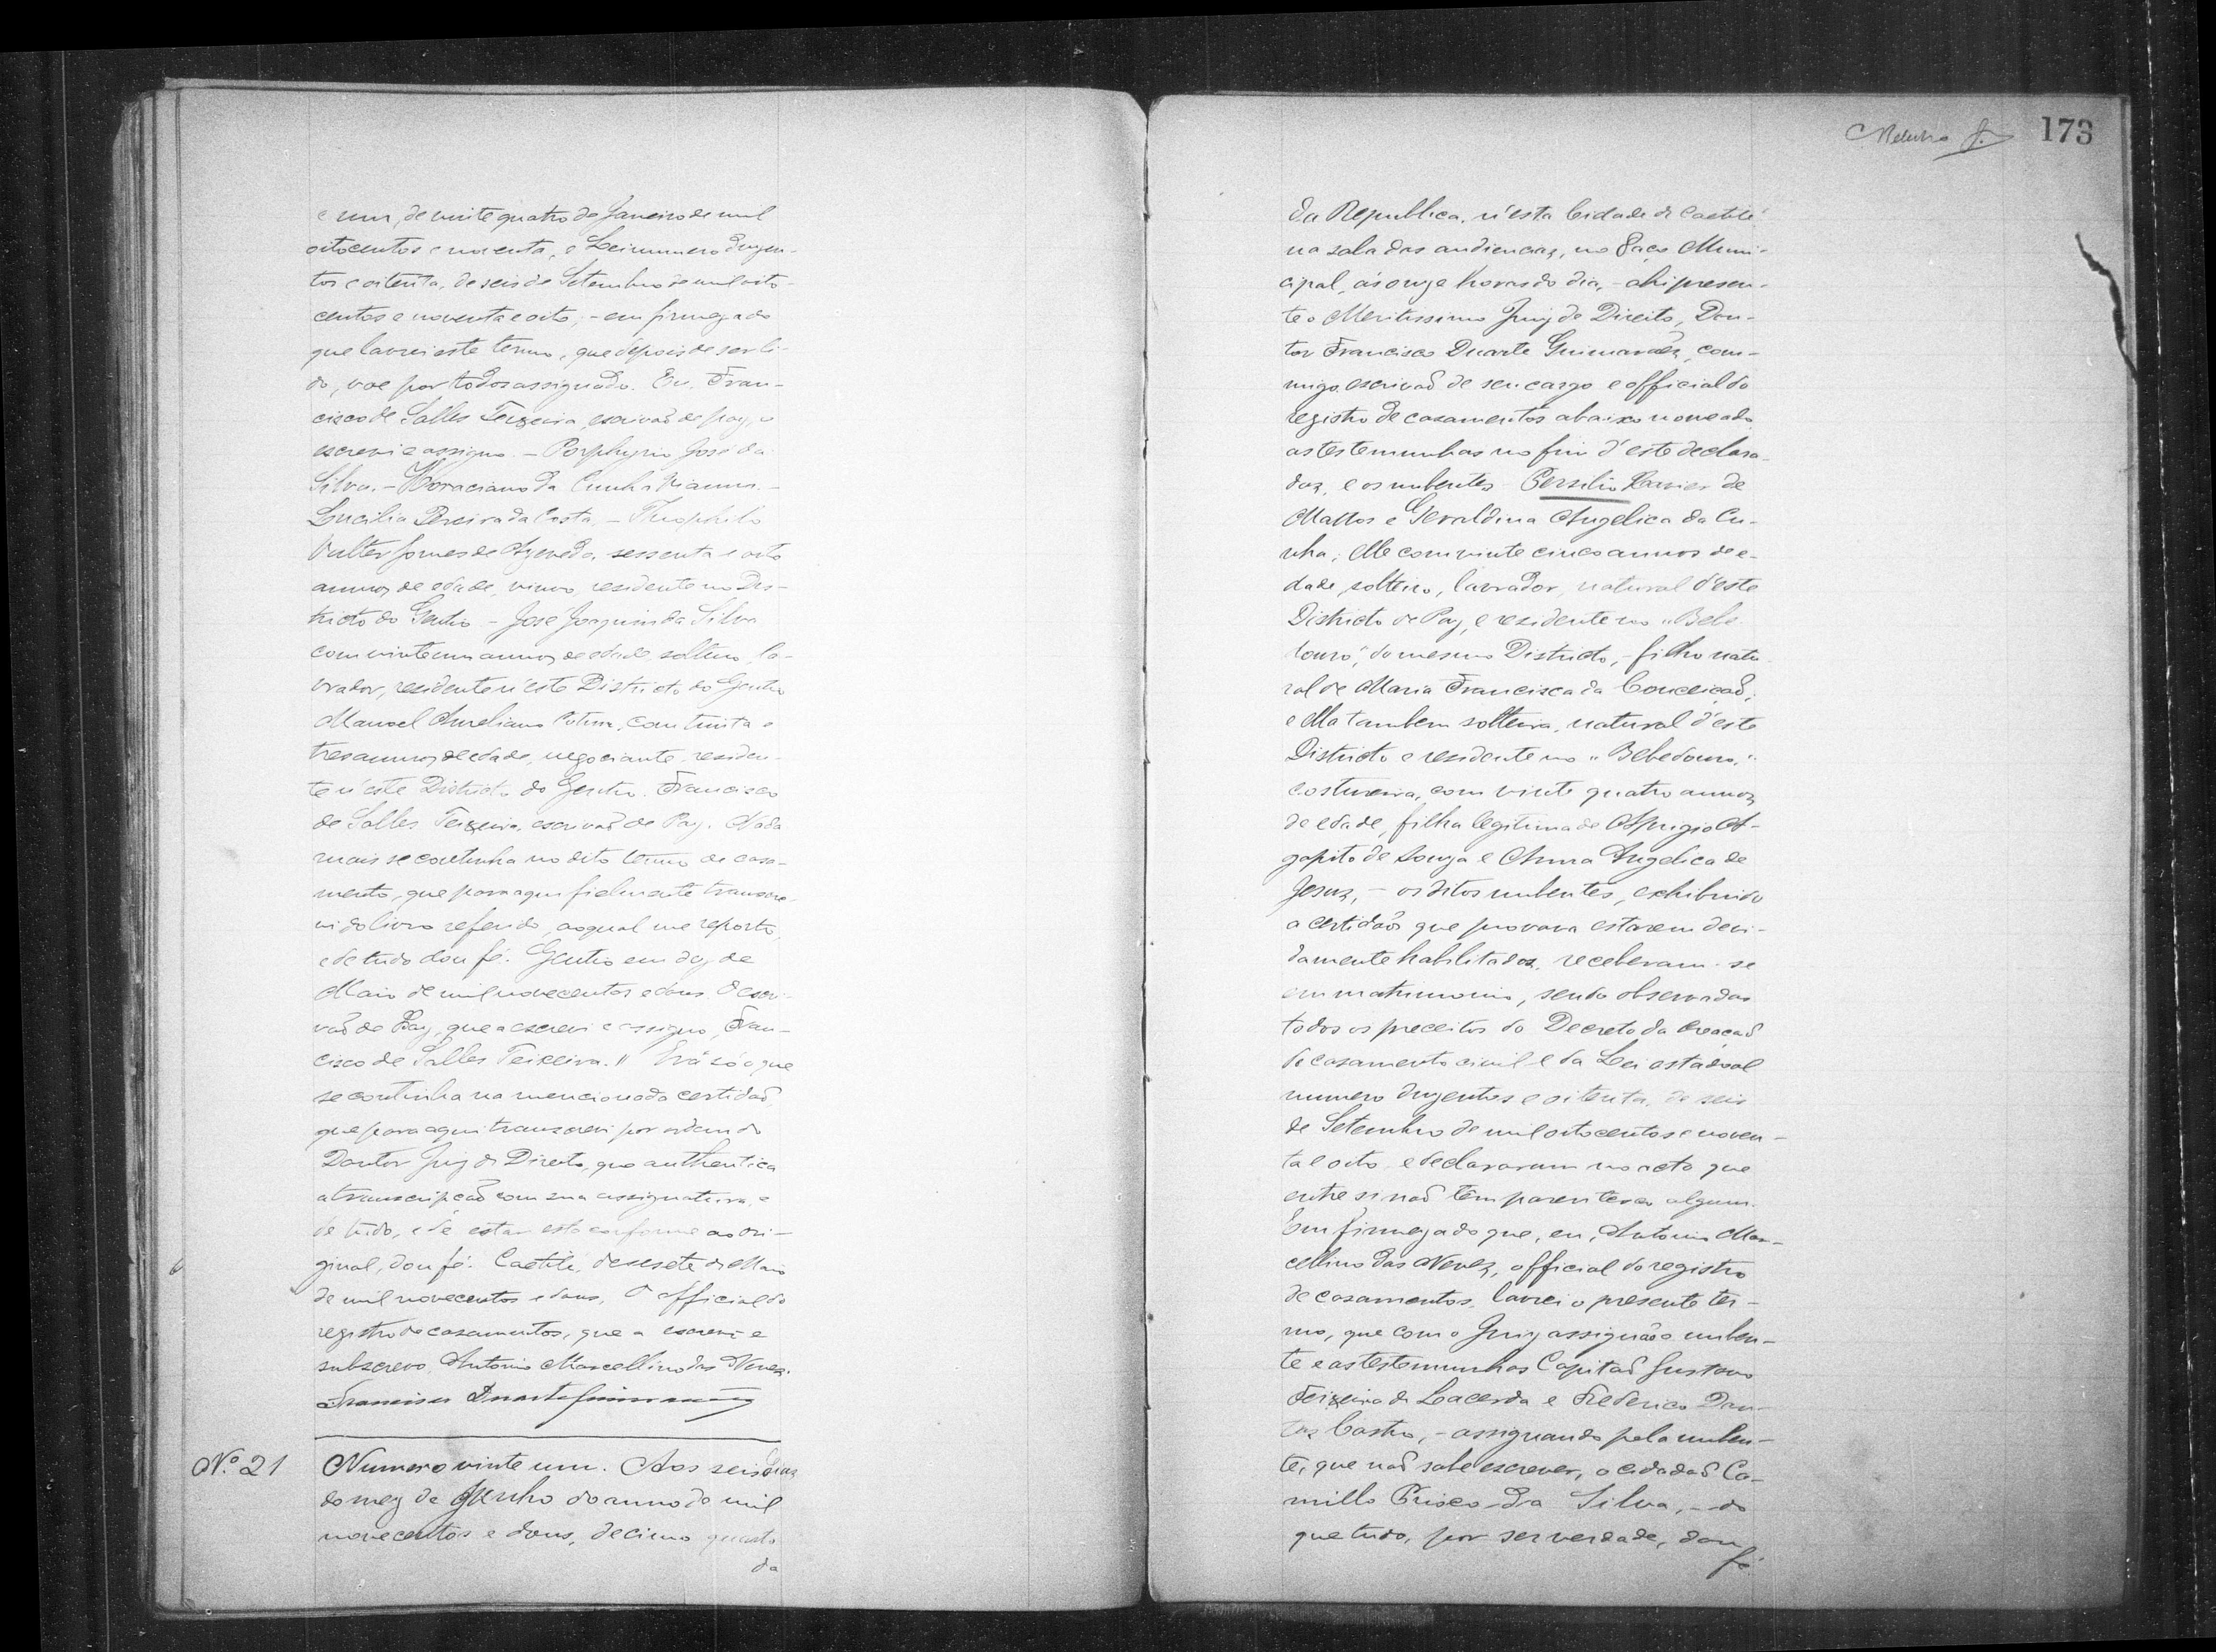 e um, de vinte quatro de Janeiro de mil
oitocentos e noventa, e Lei numero duzen-
tos e oitenta, de seis de Setembro de mil oito-
centos e noventa e oito; - em firmeza do
que lavrei este termo, que depois de ser li-
do, vae por todos assignado. Eu, Fran-
cisco de Salles Teixeira, escrivaõ de paz, o
escrevi e assigno. - Porphyrio José da
Silva. - Horaciano da Cunha Vianna. -
Lucilia Pereira da Costa. - Theophilo
Valter Gomes de Azevedo, sessenta e oito
annos de edade, viuvo, residente no Dis-
tricto do Gentio - José Joaquim da Silva
com vinte um annos de edade, solteiro, la-
vrador, residente n'este Districto do Gentio
Manoel Aureliano, com trinta e
tres annos de edade, negociante, residen-
te n'este Districto do Gentio. Francisco
de Salles Teixeira, escrivaõ de Paz. Nada
mais se continha no dito termo de casa-
mento, que para aqui fielmente transcre-
vi do livro referido, ao qual me reporto,
e de tudo dou fé. Gentio em dez de
Maio de mil novecentos e dous. O escri-
vaõ de Paz, que a escrevi e assigno, Fran-
cisco de Salles Teixeira. // Era só o que
se continha na mencionada certidaõ
que para aqui transcrevi por ordem do
Doutor Juiz de Direito, que authentica
a transcripçaõ com sua assignatura, e
de tudo, e de estar esta conforme ao ori-
ginal, dou fé. Caetité, desesete de Maio
de mil novecentos e dous. O official do
registro de casamentos, que a escrevi e
subscrevo. Antonio Marcellino das Neves.
Francisco Duarte Guimarães
Nº 21
Numero vinte um. Aos seis dias
do mez de Junho do anno de mil
novecentos e dous, decimo quarto
da
173
da Republica, n'esta Cidade de Caetité
na sala das audiencias, no Paço Muni-
cipal, ás onze horas do dia, - ahi presen-
te o Meritissimo Juiz de Direito, Dou-
tor Francisco Duarte Guimarães, com-
migo escrivaõ de seu cargo e official do
registro de casamentos abaixo nomeado
as testemunhas no fim d'este declara-
das, e os nubentes Persilio Xavier de
Mattos e Geraldina Angelica da Cu-
nha; elle com vinte cinco annos de e-
dade, solteiro, lavrador, natural d'este
Districto de Paz, e residente no "Bebe-
douro", do mesmo Districto, - filho natu-
ral de Maria Francisca da Conceiçaõ;
e ella tambem solteira, natural d'este
Districto e residente no "Bebedouro,"
costureira, com vinte quatro annos
de edade, filha legitima de Aprigio A-
gapito de Souza e Anna Angelica de
Jesus, - os ditos nubentes, exhibindo
a certidaõ que provava estarem devi-
damente habilitados, receberam-se
em matrimonio, sendo observados
todos os preceitos do Decreto da creaçaõ
do casamento civil e da Lei estadoal
numero duzentos e oitenta, de seis
de Setembro de mil oitocentos e noven-
ta e oito, e declararam no acto que
entre si naõ têm parentesco algum.
Em firmeza do que, eu, Antonio Mar-
cellino das Neves, official do registro
de casamentos, lavrei o presente ter-
mo, que com o Juiz assignaõ o nuben-
te e as testemunhas Capitaõ Gustavo
Teixeira de Lacerda e Frederico Dan-
tas Castro, - assignando pela nuben-
te, que naõ sabe escrever, o cidadaõ Ca-
millo Prisco da Silva, - do
que tudo, por ser verdade, dou
fé